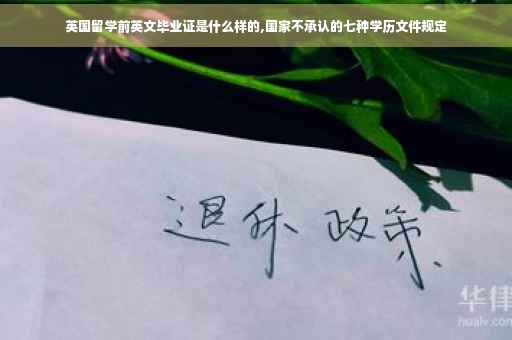 英国留学前英文毕业证是什么样的,国家不承认的七种学历文件规定
退休 政策
华律
hualv.com